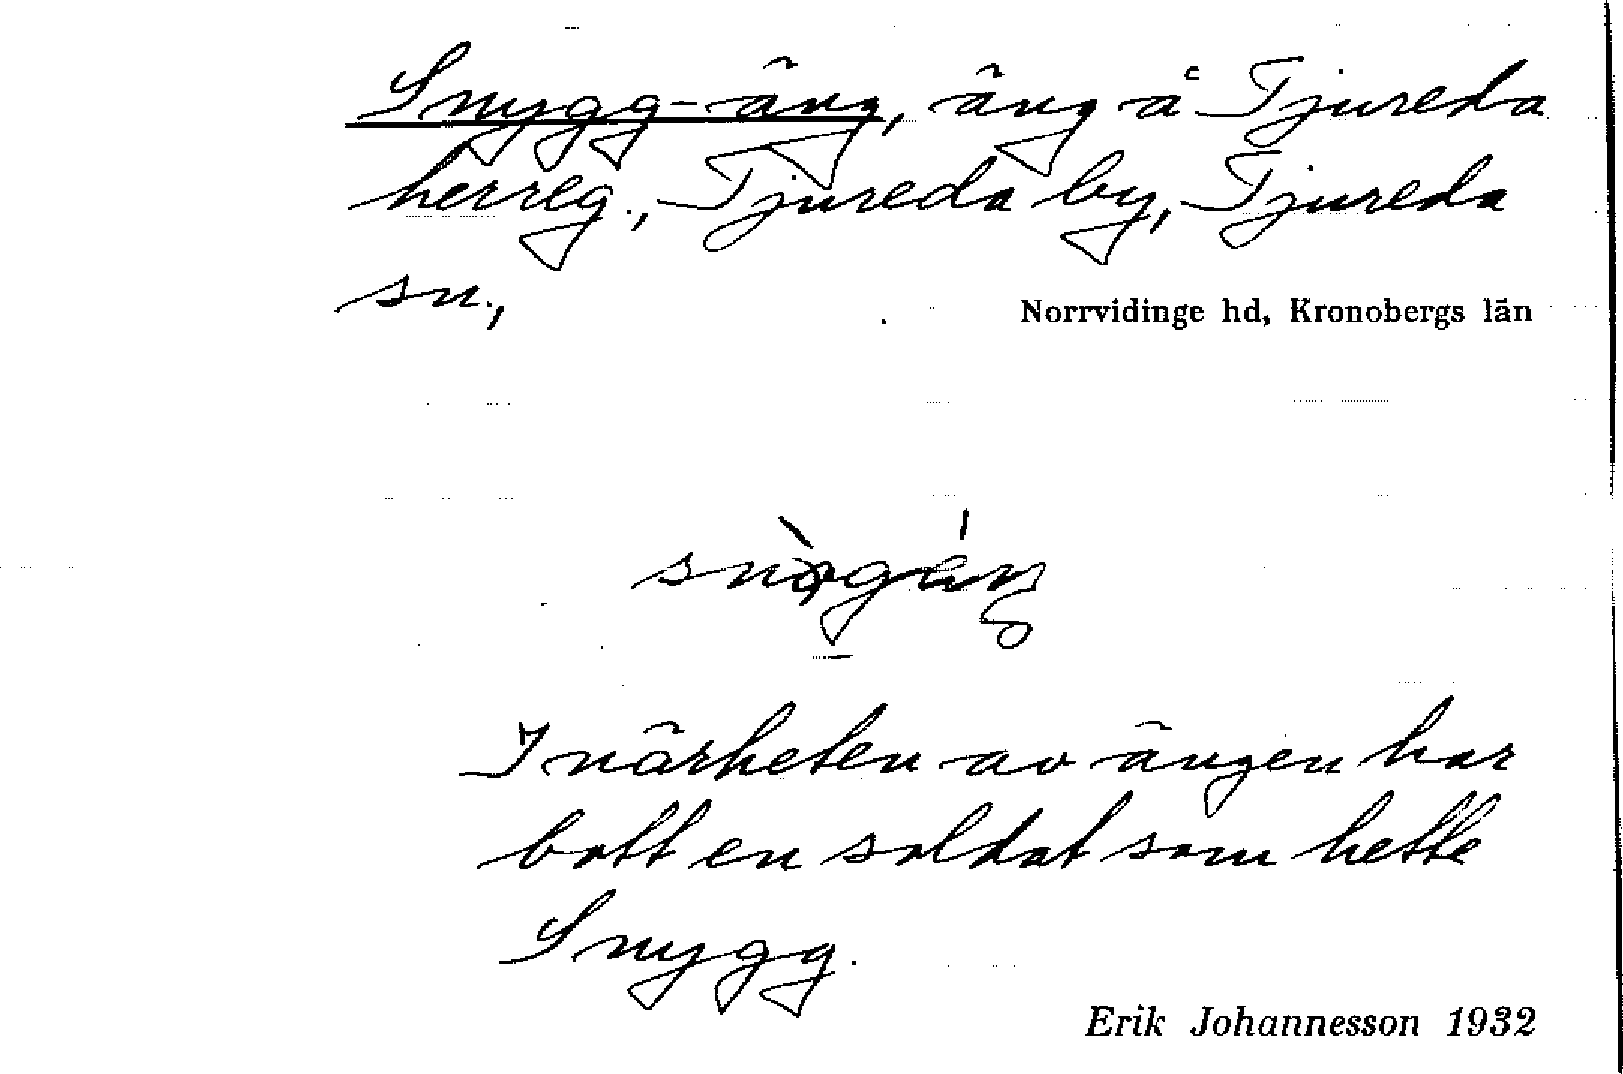 Snygg-äng, äng å Tjureda
herreg., Tjureda by, Tjureda
sn.,
Norrvidinge hd, Kronobergs län
I närheten av ängen har
bott en soldat som hette
Snygg.
Erik Johannesson 1932